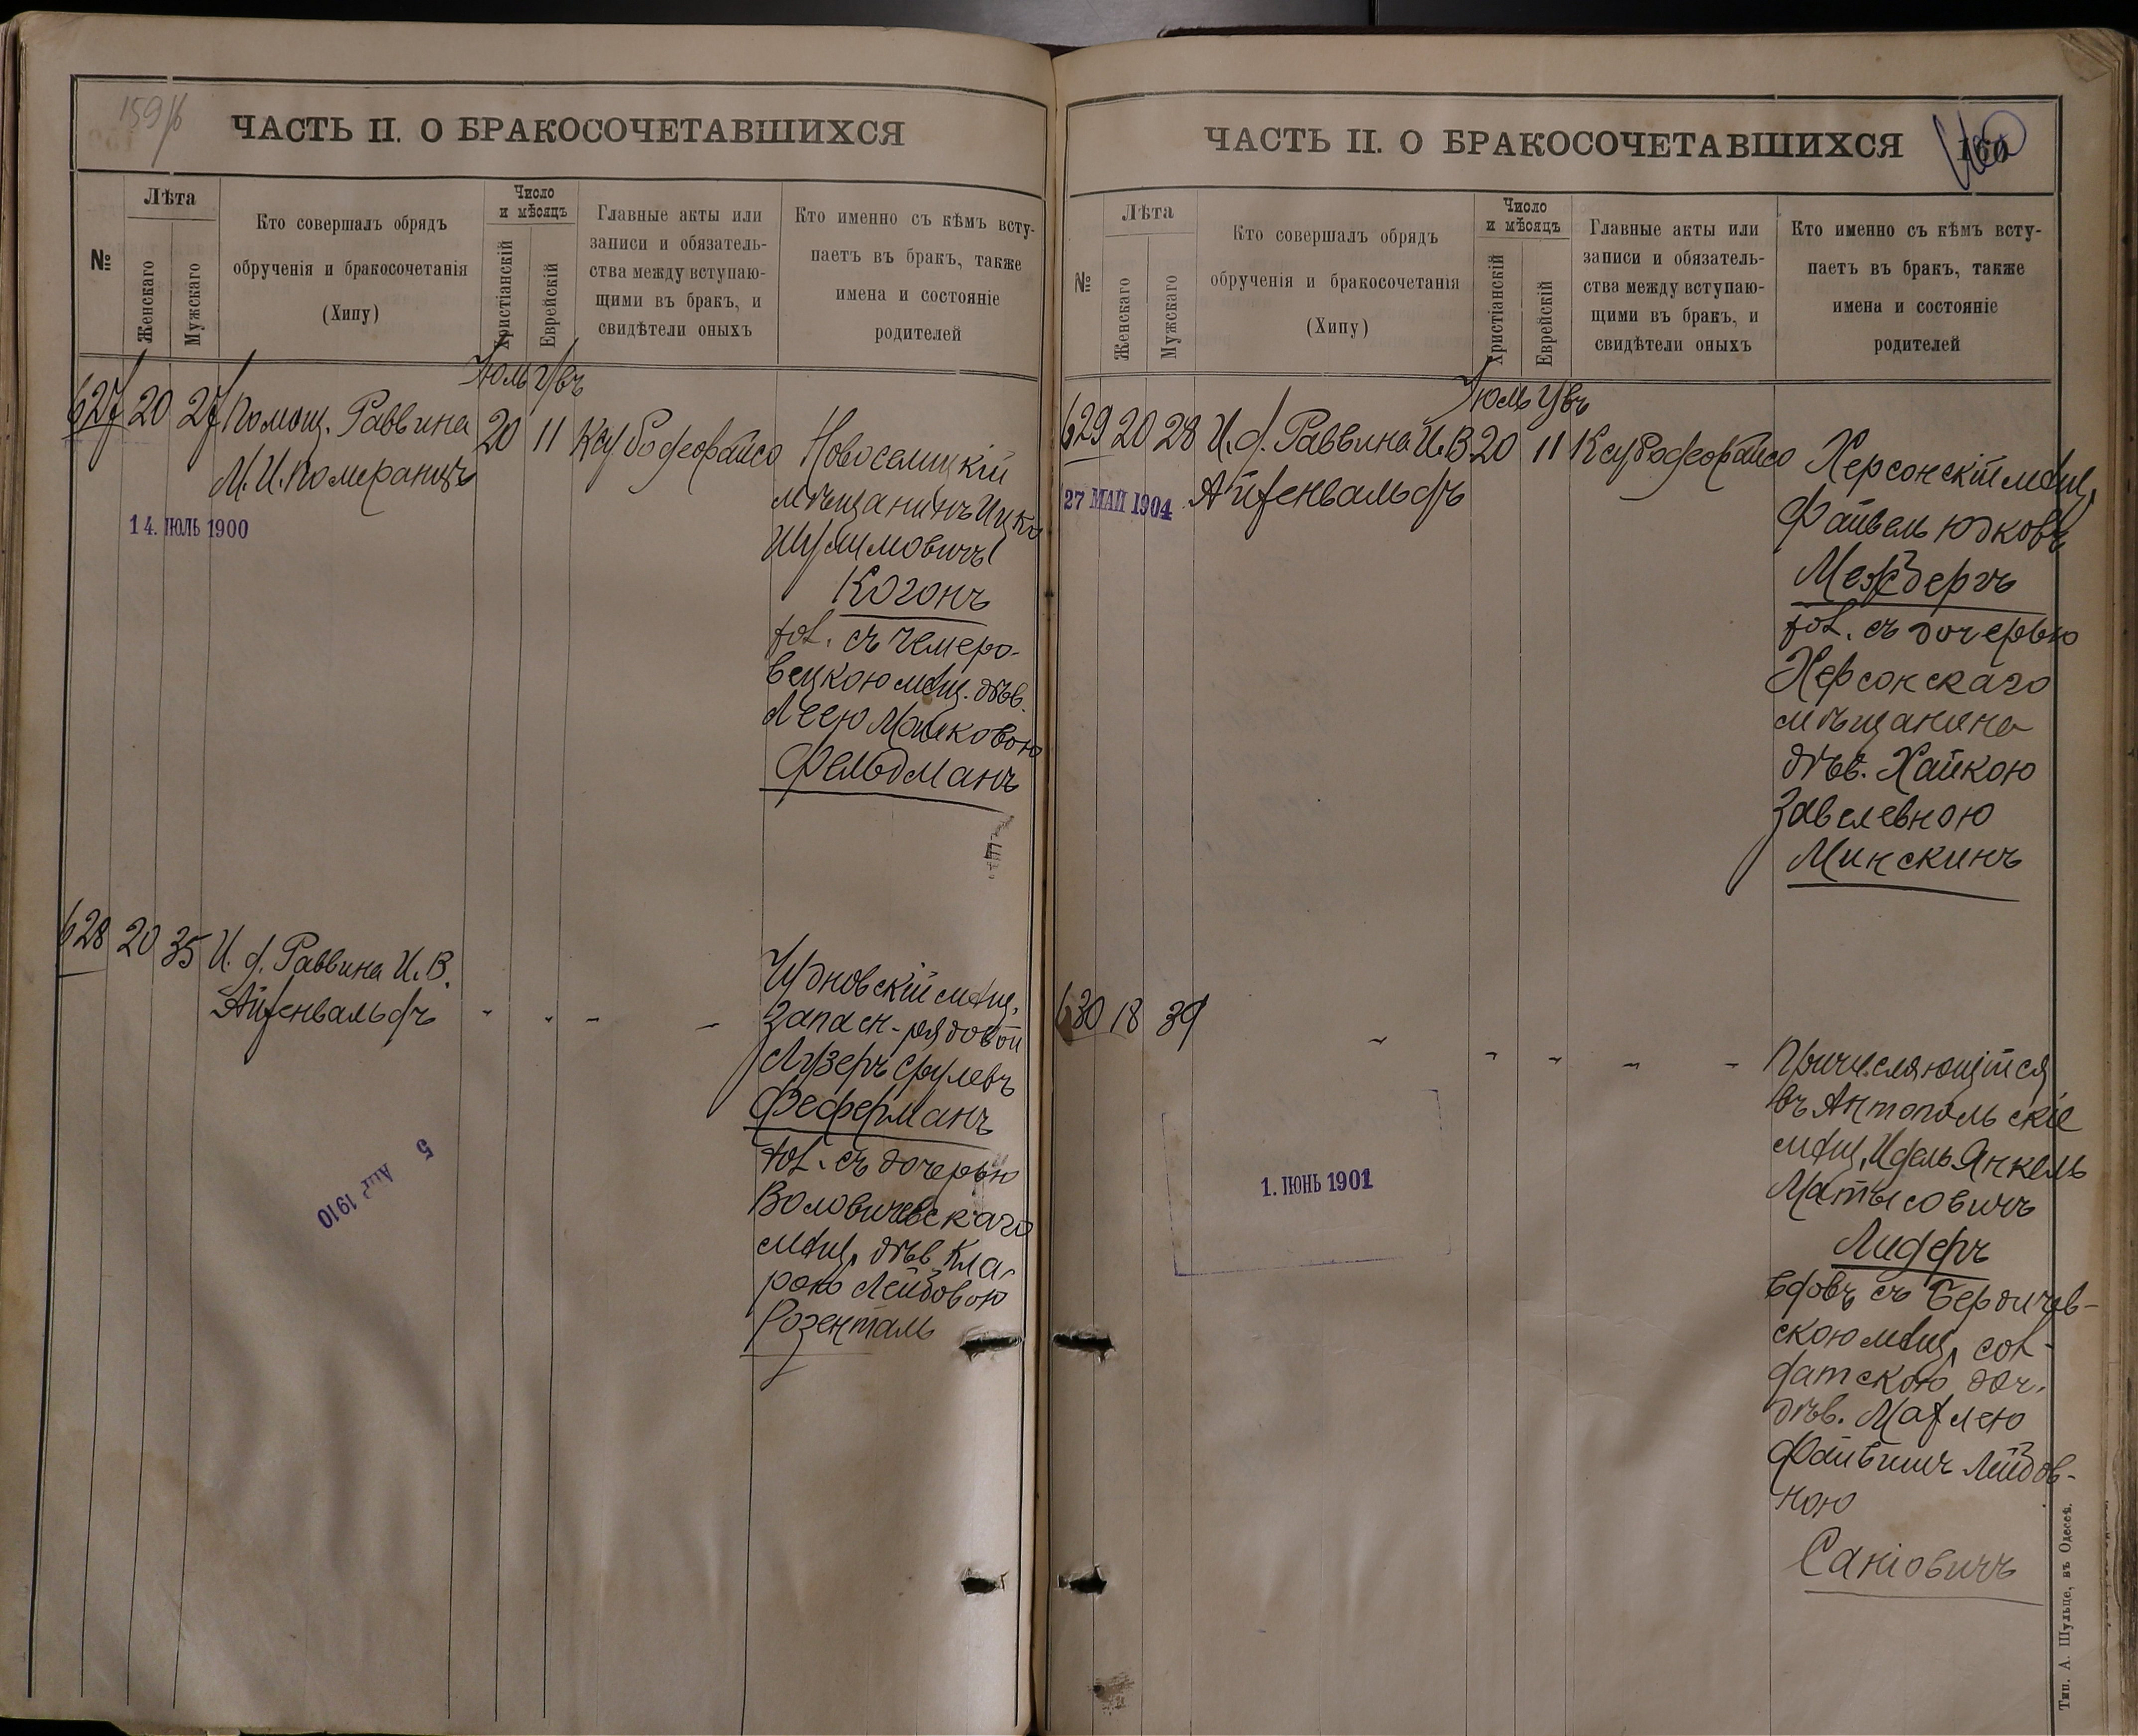 159
ЧАСТЬ II. О БРАКОСОЧЕТАВШИХСЯ
№
Лѣта
Женскаго
Мужскаго
Кто совершалъ обрядъ
обрученія и бракосочетанія
(Хипу)
Число
и мѣсяцъ
Христіанскій
Еврейскій
Главные акты или
записи и обязатель-
ства между вступаю-
щими въ бракъ, и
свидѣтели оныхъ
Кто именно съ кѣмъ всту-
паетъ въ бракъ, также
имена и состояніе
родителей
Іюль
627 20 27 Помощ. Раввина
М. И. Померанцъ
20 11
14. ІЮЛЬ 1900
Новоселицкій
мѣщанинъ Ицко
Шулимовичъ
Когонъ
хол. съ Чемеро-
вецкою мѣщ. дѣв.
Леею Мошковою
Фельдманъ
628 20 35 И. д. Раввина И. В.
Айзенвальдъ
Чудновскій мѣщ.
запасн. рядовой
Лузеръ Срулевъ
Феферманъ
хол. съ дочерью
Воловичевскаго
мѣщ. дѣв. Кла-
рою Лейбовою
Розенталь
5 Авг 1910
ЧАСТЬ II. О БРАКОСОЧЕТАВШИХСЯ
160
№
Лѣта
Женскаго
Мужскаго
Кто совершалъ обрядъ
обрученія и бракосочетанія
(Хипу)
Число
и мѣсяцъ
Христіанскій
Еврейскій
Главные акты или
записи и обязатель-
ства между вступаю-
щими въ бракъ, и
свидѣтели оныхъ
Кто именно съ кѣмъ всту-
паетъ въ бракъ, также
имена и состояніе
родителей
Іюль
629 20 28 И. д. Раввина И. В.
Айзенвальдъ
20 11
27 МАЙ 1904
Херсонскій мѣщ.
Файвель Юдковъ
Межберъ
хол. съ дочерью
Херсонскаго
мѣщанина
дѣв. Хайкою
Завелевною
Минскинъ
630 18 39
1. ІЮНЬ 1901
Причисляющійся
въ Антопольскіе
мѣщ. Идель Янкель
Матысовичъ
Лидеръ
вдовъ съ Бердичев-
скою мѣщ. сол-
датскою доч.
дѣв. Махлею
Файвишъ Лейбов-
ною
Саніовичъ
Тип. А. Шульце, въ Одессѣ.